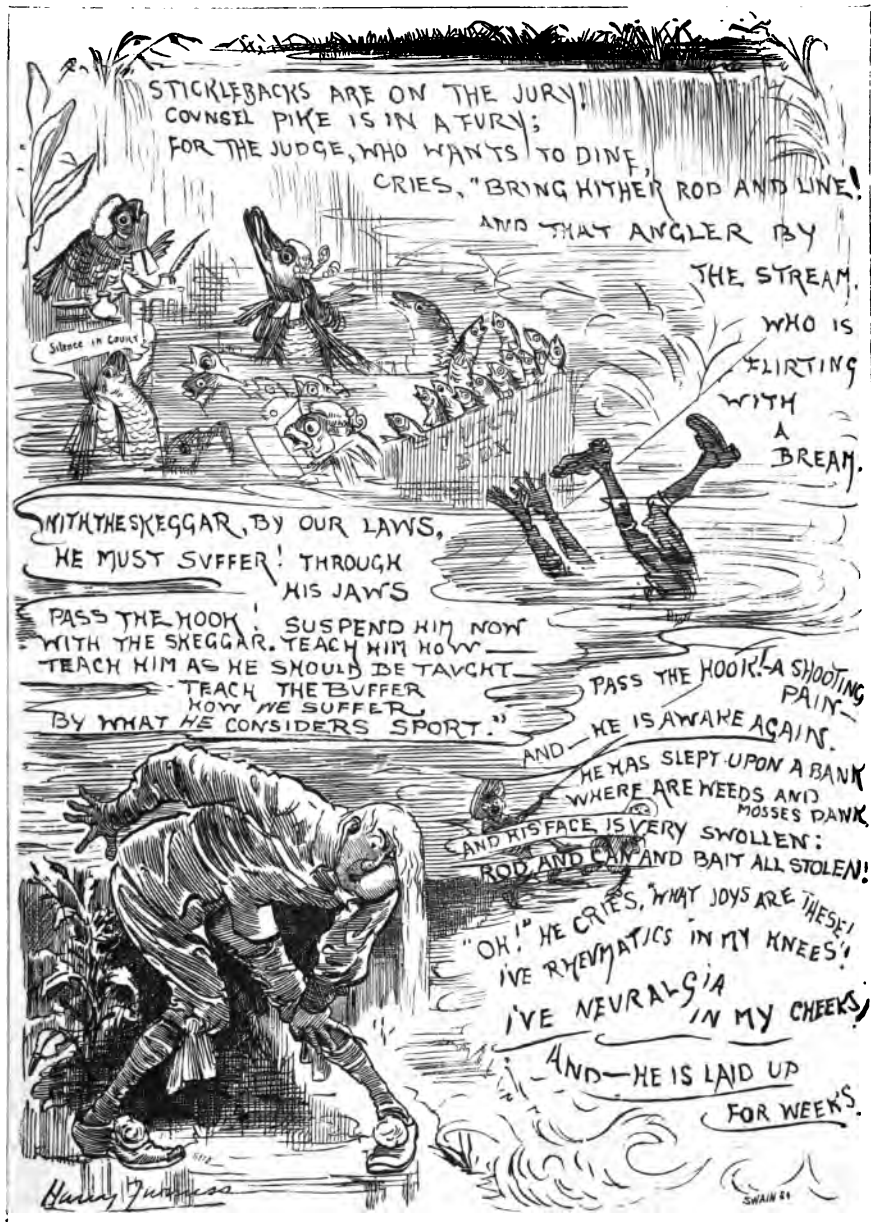 STICKLEBACKS ARE ON THE JURY!
COUNSEL PIKE IS IN A FURY;
FOR THE JUDGE, WHO WANTS TO DINE,
CRIES, "BRING HITHER ROD AND LINE!
AND THAT ANGLER BY
THE STREAM.
WHO IS
FLIRTING
WITH
A
BREAM.
Silence in Court
BOX
WITH THE SKEGGAR, BY OUR LAWS,
HE MUST SUFFER! THROUGH
HIS JAWS
PASS THE HOOK! SUSPEND HIM NOW
WITH THE SKEGGAR. TEACH HIM HOW—
TEACH HIM AS HE SHOULD BE TAUGHT—
TEACH THE BUFFER
HOW WE SUFFER,
BY WHAT HE CONSIDERS SPORT."
PASS THE HOOK!—A SHOOTING
PAIN—
AND—HE IS AWAKE AGAIN.
HE HAS SLEPT UPON A BANK
WHERE ARE WEEDS AND
MOSSES DANK,
AND HIS FACE IS VERY SWOLLEN:
ROD AND CAN AND BAIT ALL STOLEN!
"OH!" HE CRIES, "WHAT JOYS ARE THESE!
I'VE RHEUMATICS IN MY KNEES!
I'VE NEURALGIA
IN MY CHEEKS!
AND—HE IS LAID UP
FOR WEEKS.
Harry Furniss
SWAIN SC